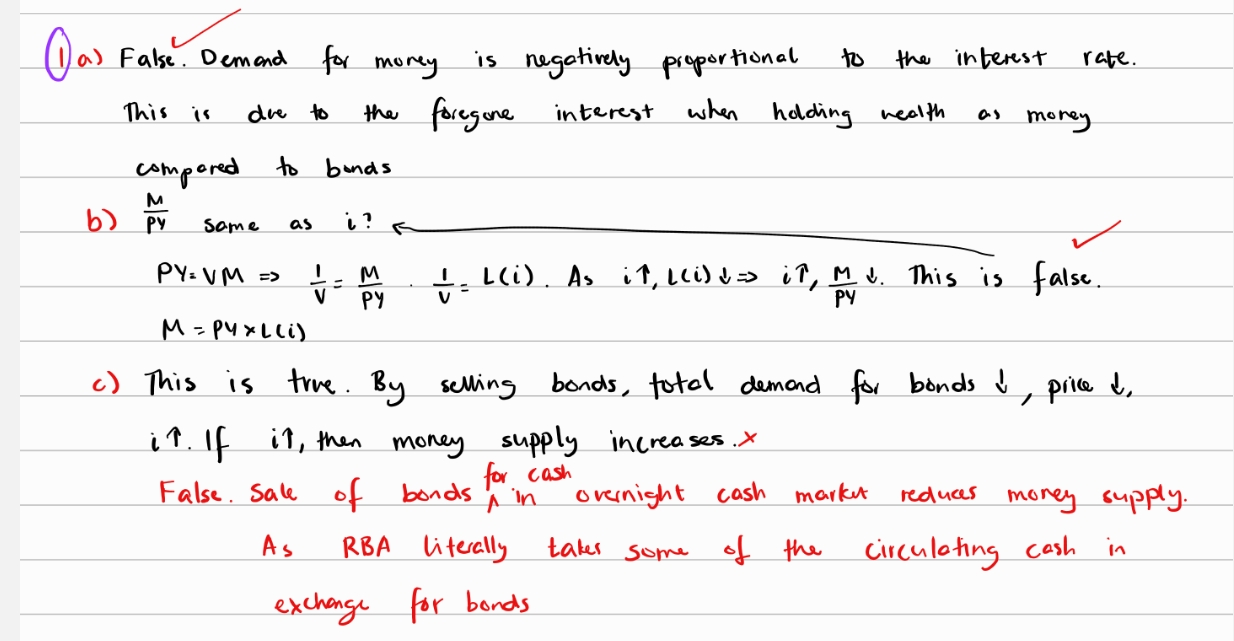 1 a) False. Demand for money is negatively proportional to the interest rate.
This is due to the foregone interest when holding wealth as money
compared to bonds
b) M/PY same as i?
PY=VM => 1/V = M/PY . 1/V = L(i). As i↑, L(i)↓ => i↑, M/PY ↓. This is false.
M = PY×L(i)
c) This is true. By selling bonds, total demand for bonds ↓, price ↓,
i↑. If i↑, then money supply increases. ×
False. Sale of bonds for cash in overnight cash market reduces money supply.
As RBA literally takes some of the circulating cash in
exchange for bonds